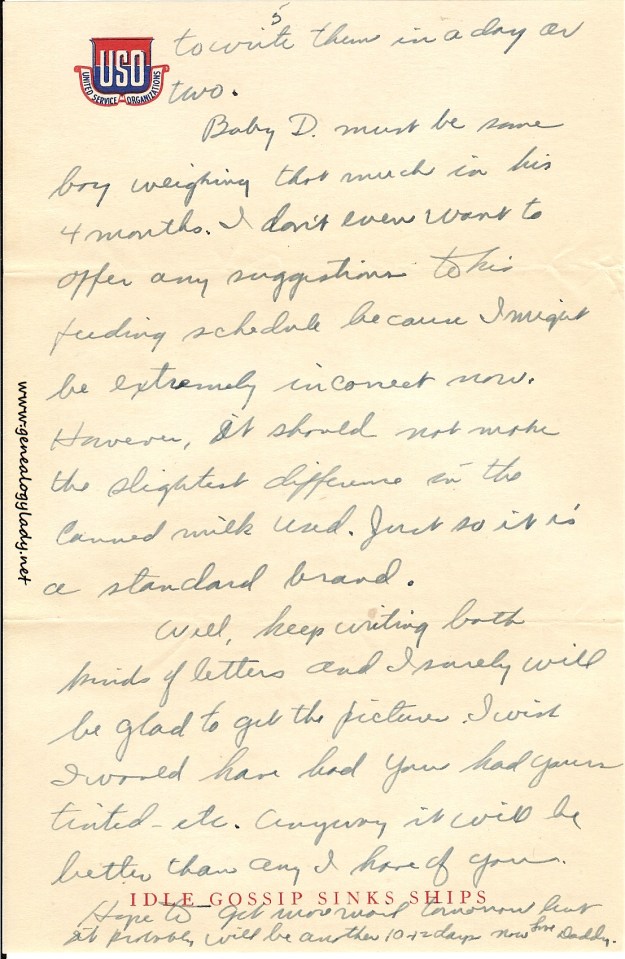 5
USO
UNITED SERVICE ORGANIZATIONS
to write them in a day or
two.
Baby D. must be some
boy weighing that much in his
4 months. I don't even want to
offer any suggestions to his
feeding schedule because I might
be extremely incorrect now.
However, it should not make
the slightest difference in the
canned milk used. Just so it is
a standard brand.
Well, keep writing both
kinds of letters and I surely will
be glad to get the picture. I wish
I would have had you had yours
tinted - etc. Anyway it will be
better than any I have of you.
IDLE GOSSIP SINKS SHIPS
Hope to get more word tomorrow but
it probably will be another 10-12 days now Love Daddy.
www.genealogylady.net